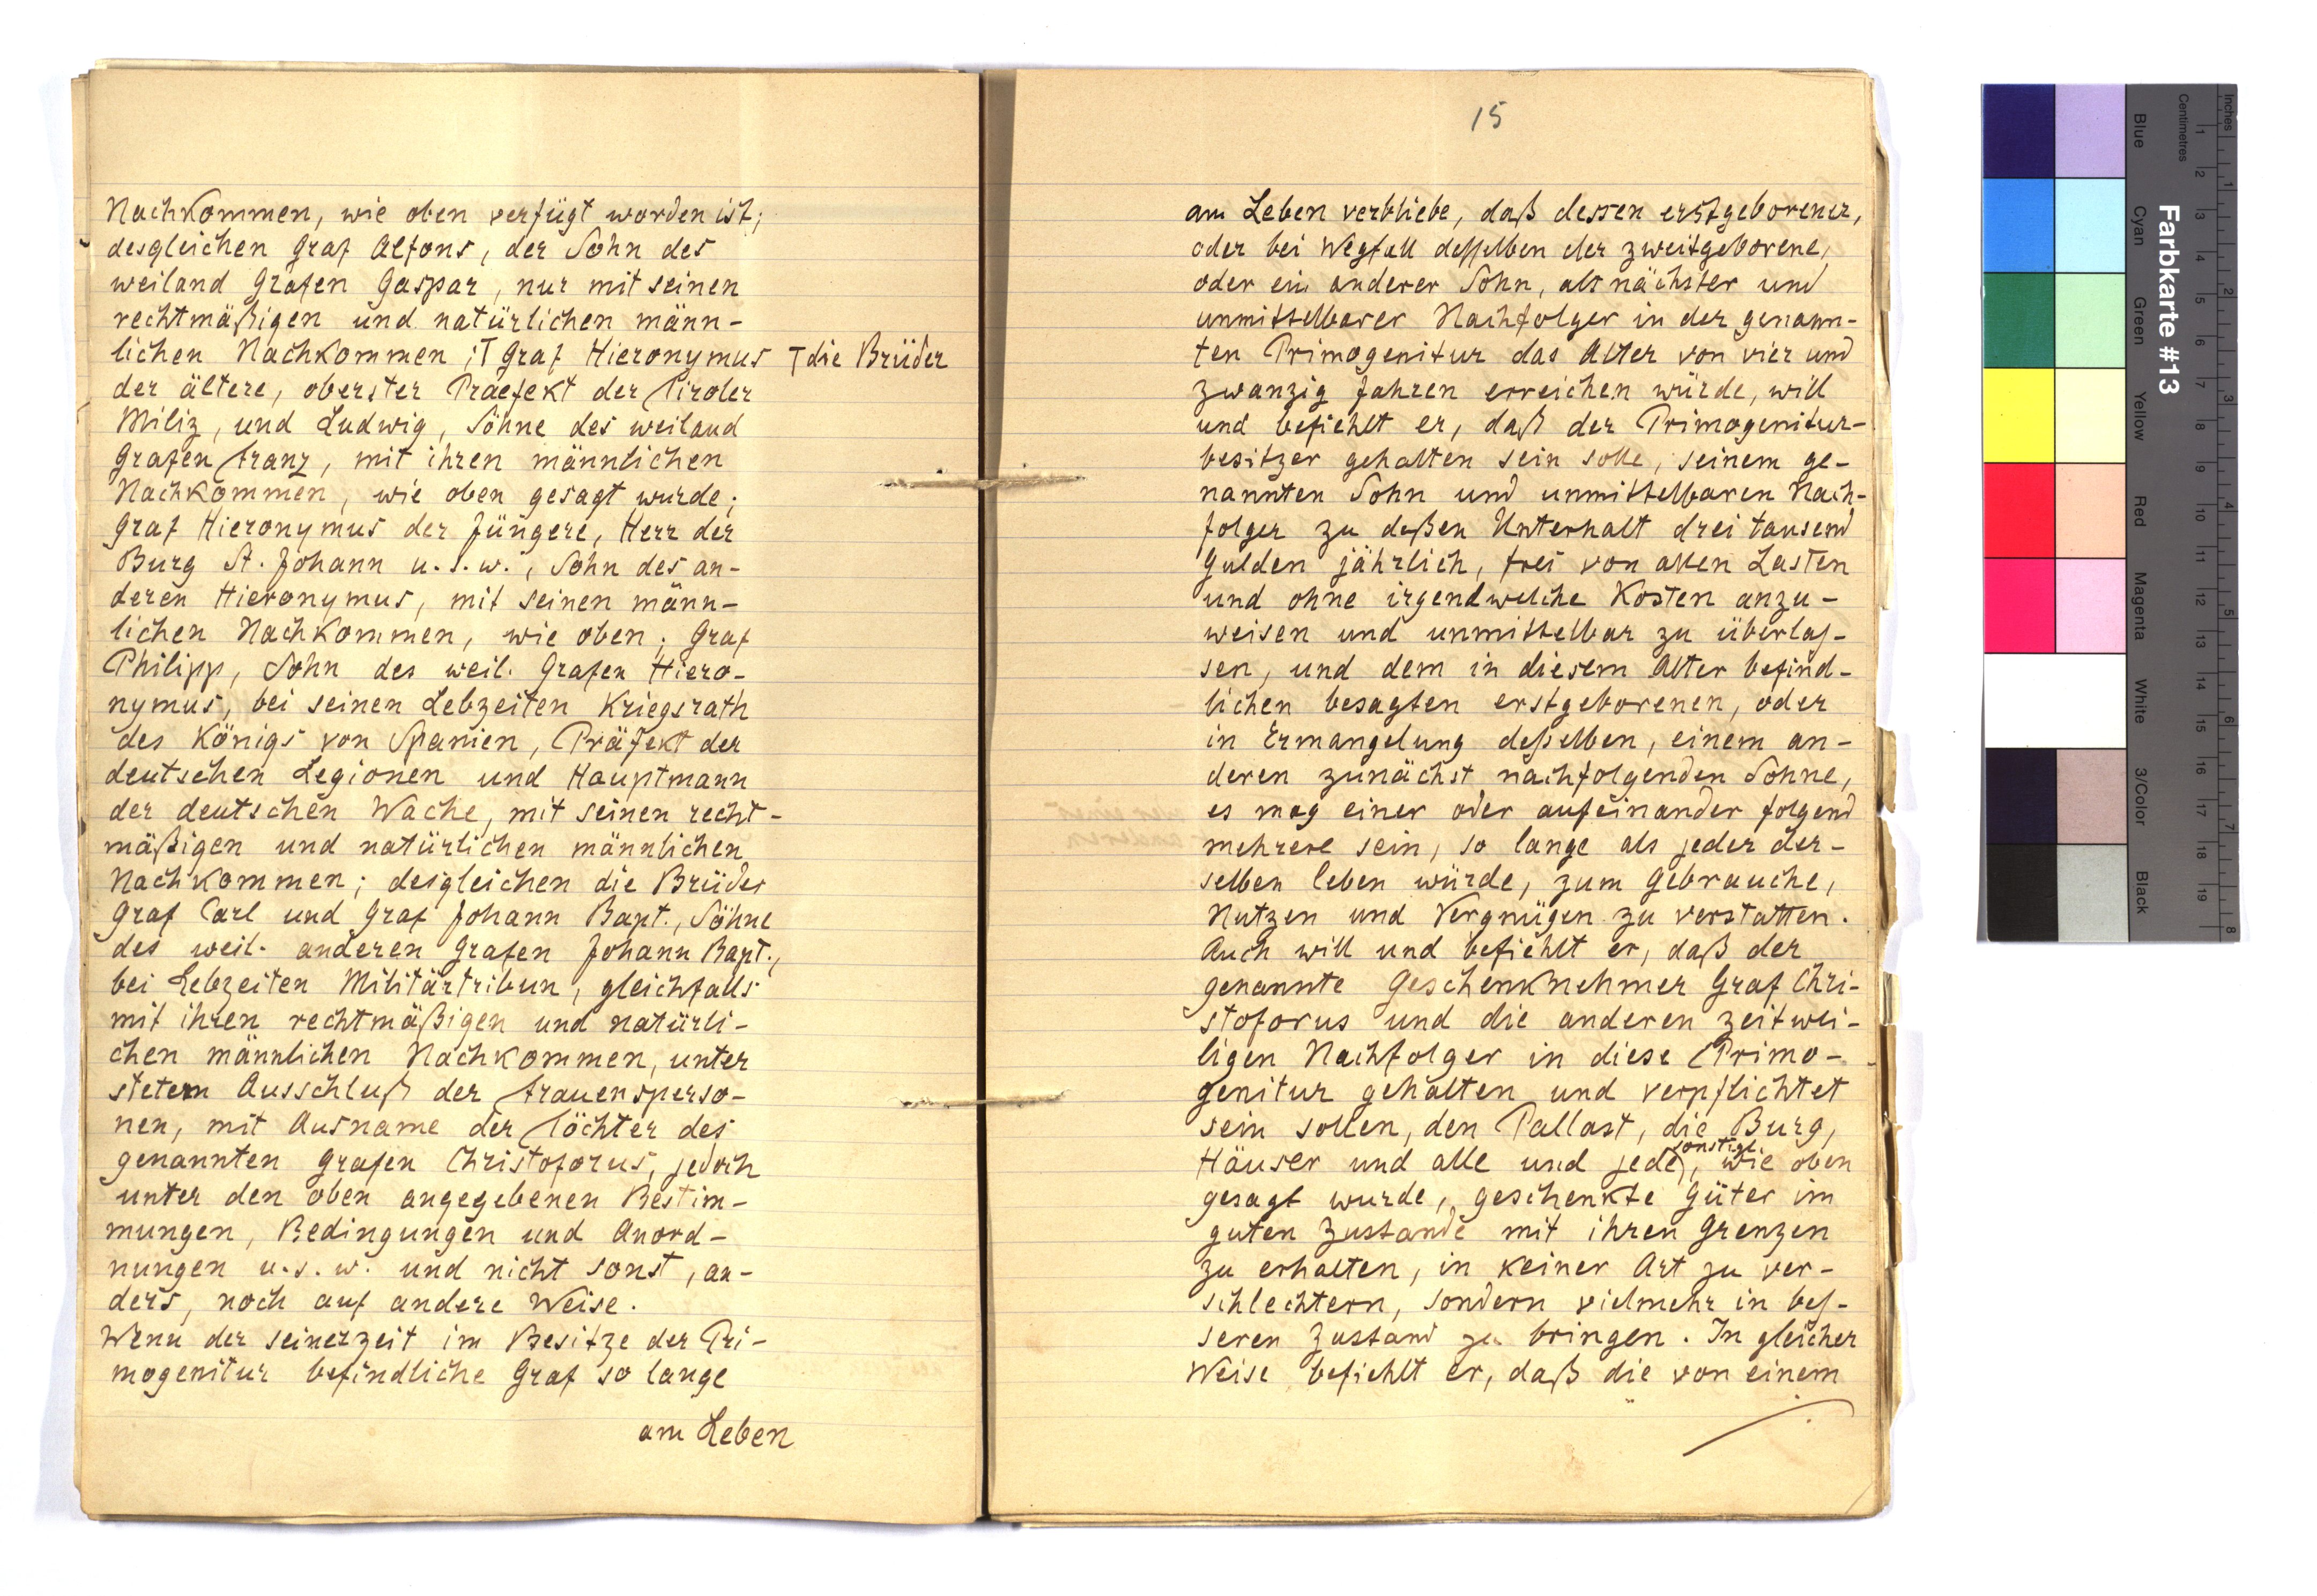 Nachkommen, wie oben verfügt worden ist;
desgleichen Graf Alfons, der Sohn des
weiland Grafen Gaspar, nur mit seinen
rechtmäßigen und natürlichen männ-
lichen Nachkommen ;⊤ Graf Hieronymus ⊤ die Brüder
der ältere, oberster Praefekt der Tiroler
Miliz, und Ludwig, Söhne des weiland
Grafen Franz, mit ihren männlichen
Nachkommen, wie oben gesagt wurde;
Graf Hieronymus der Jüngere, Herr der
Burg St. Johann u.s.w., Sohn des an-
deren Hieronymus, mit seinen männ-
lichen Nachkommen, wie oben; Graf
Philipp, Sohn des weil. Grafen Hiero-
nymus, bei seinen Lebzeiten Kriegsrath
des Königs von Spanien, Präfekt der
deutschen Legionen und Hauptmann
der deutschen Wache, mit seinen recht-
mäßigen und natürlichen männlichen
Nachkommen; desgleichen die Brüder
Graf Carl und Graf Johann Bapt., Söhne
des weil. anderen Grafen Johann Bapt.,
bei Lebzeiten Militärtribun, gleichfalls
mit ihren rechtmäßigen und natürli-
chen männlichen Nachkommen, unter
stetem Ausschluß der Frauensperso-
nen, mit Ausname der Töchter des
genannten Grafen Christoforus, jedoch
unter den oben angegebenen Bestim-
mungen, Bedingungen und Anord-
nungen u.s.w. und nicht sonst, an-
ders, noch auf andere Weise.
Wenn der seinerzeit im Besitze der Pri-
mogenitur befindliche Graf so lange
am Leben
15
am Leben verbliebe, daß dessen erstgeborener,
oder bei Wegfall desselben der zweitgeborene,
oder ein anderer Sohn, als nächster und
unmittelbarer Nachfolger in der genann-
ten Primogenitur das Alter von vier und
zwanzig Jahren erreichen würde, will
und befiehlt er, daß der Primogenitur-
besitzer gehalten sein solle, seinem ge-
nannten Sohn und unmittelbaren Nach-
folger zu deßen Unterhalt drei tausend
Gulden jährlich, frei von allen Lasten
und ohne irgendwelche Kosten anzu-
weisen und unmittelbar zu überlas-
sen, und dem in diesem Alter befind-
lichen besagten erstgeborenen, oder
in Ermangelung deßelben, einem an-
deren zunächst nachfolgenden Sohne,
es mag einer oder aufeinander folgend
mehrere sein, so lange als jeder der-
selben leben würde, zum Gebrauche,
Nutzen und Vergnügen zu verstatten.
Auch will und befiehlt er, daß der
genannte Geschenknehmer Graf Chri-
stoforus und die anderen zeitwei-
ligen Nachfolger in diese Primo-
genitur gehalten und verpflichtet
sein sollen, den Pallast, die Burg,
sonstige
Häuser und alle und jede), wie oben
gesagt wurde, geschenkte Güter im
guten Zustande mit ihren Grenzen
zu erhalten, in keiner Art zu ver-
schlechtern, sondern vielmehr in bes-
seren Zustand zu bringen. In gleicher
Weise befiehlt er, daß die von einem
Farbkarte #13
Inches 1 2 3 4 5 6 7 8
Centimetres 1 2 3 4 5 6 7 8 9 10 11 12 13 14 15 16 17 18 19
Blue Cyan Green Yellow Red Magenta White 3/Color Black